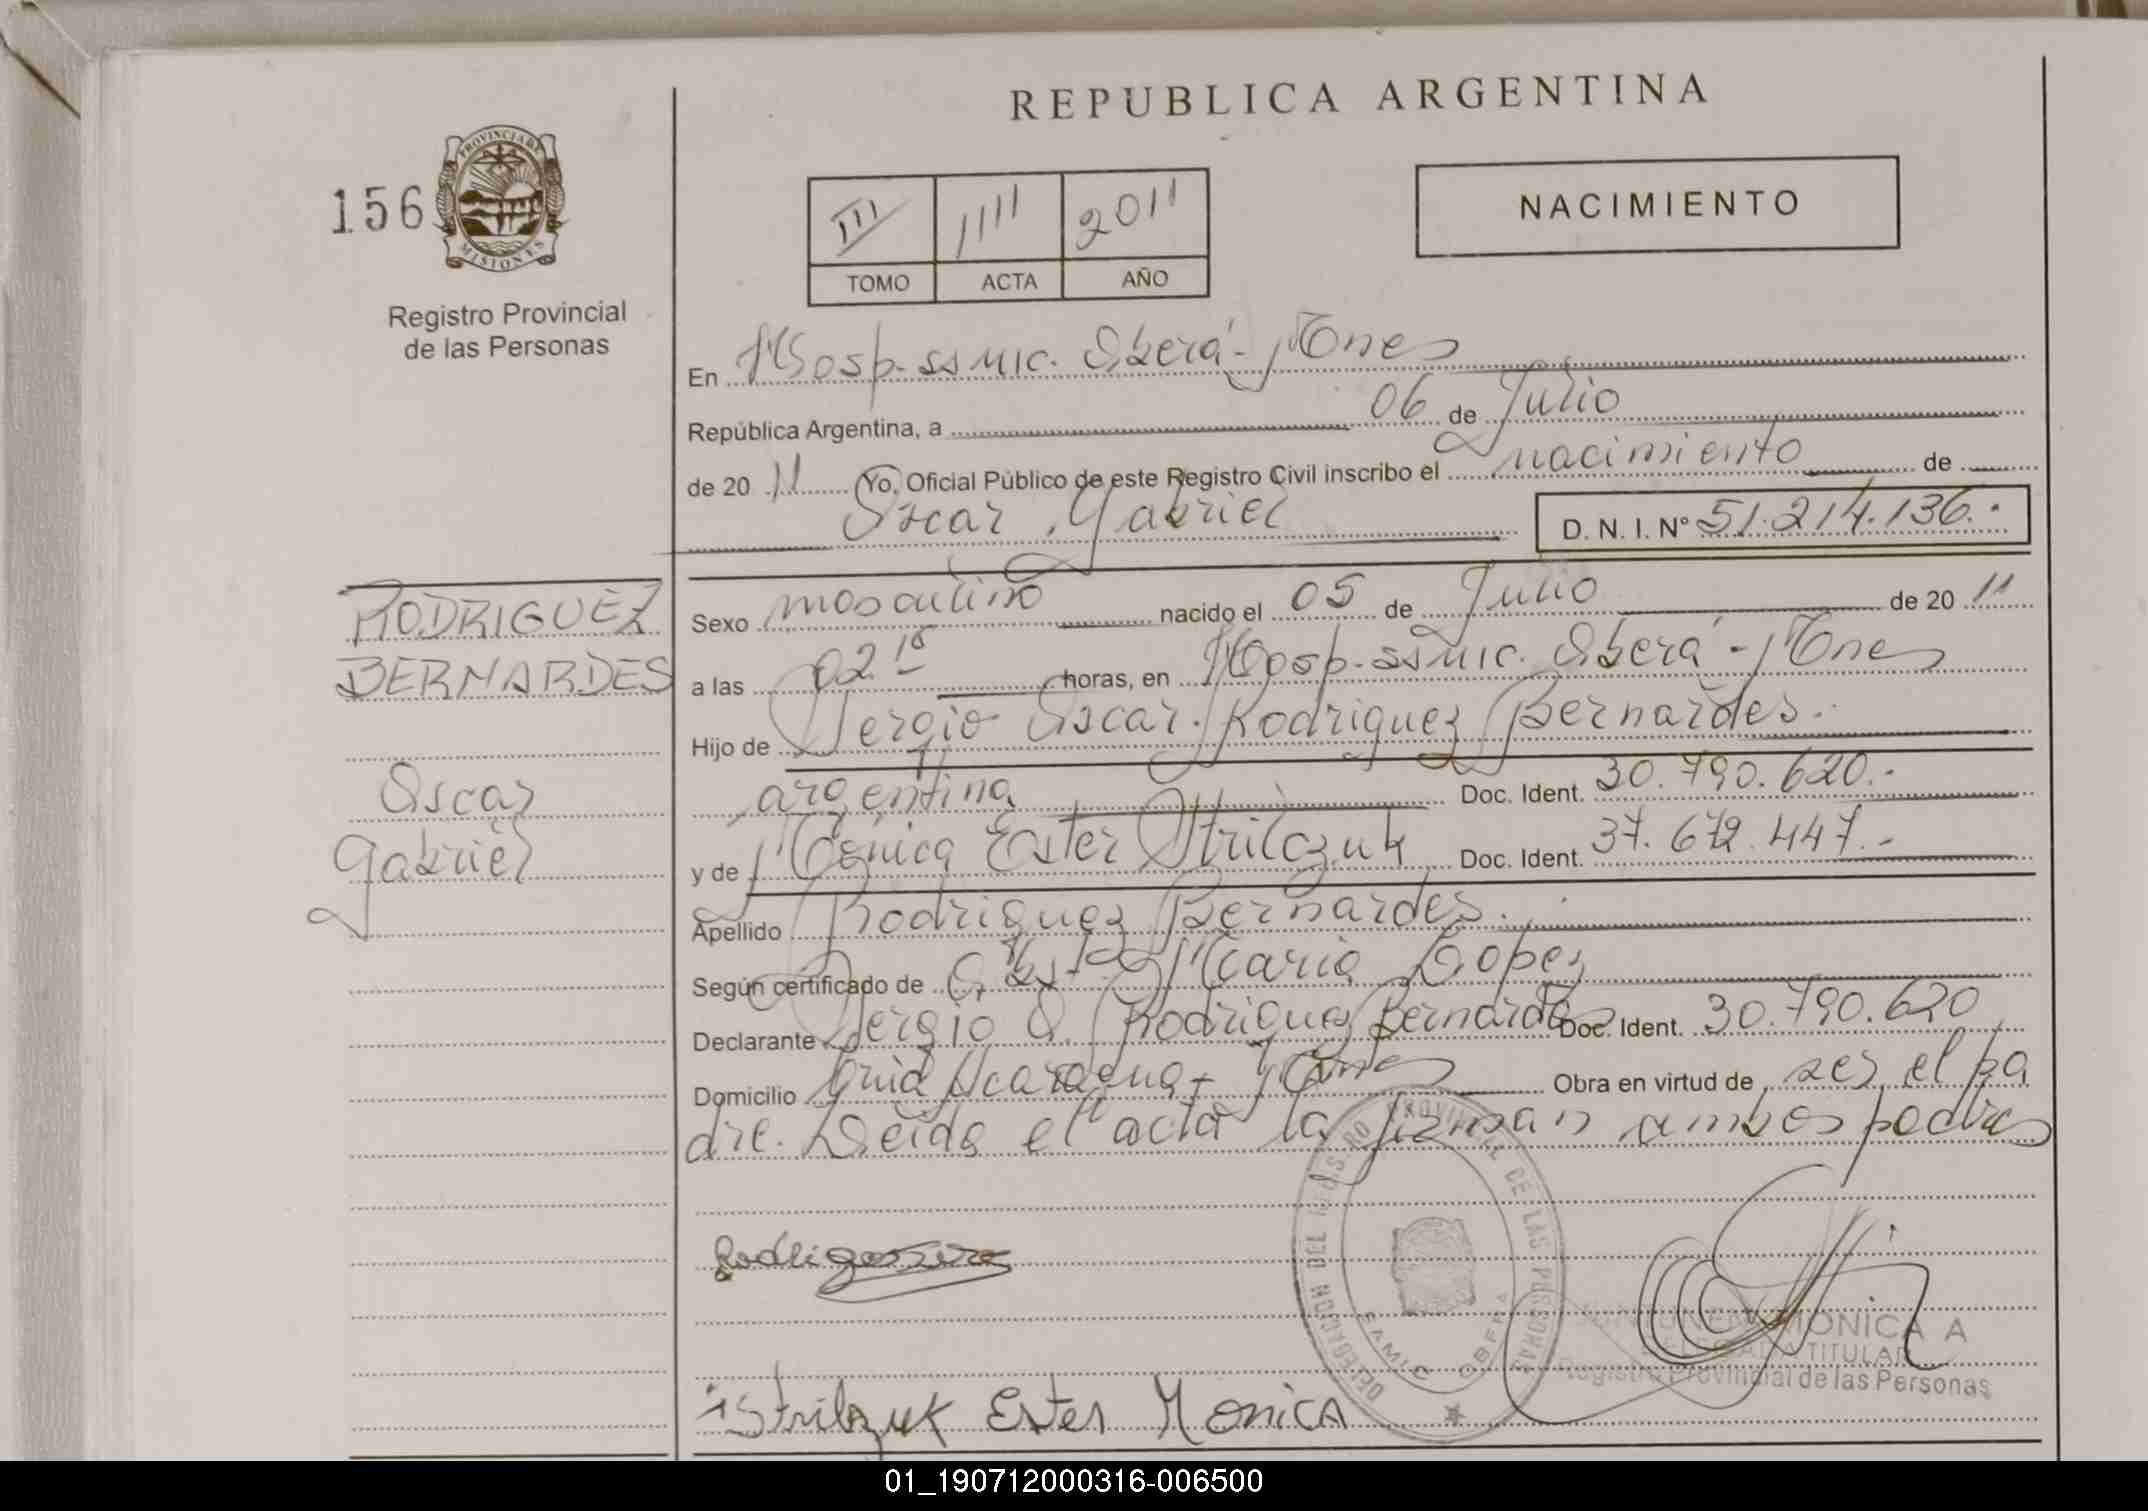 REPUBLICA ARGENTINA
156
PROVINCIA DE
MISIONES
Registro Provincial
de las Personas
III 1111 2011
TOMO ACTA AÑO
NACIMIENTO
En Hosp. SSMIC. Oberá - Mnes
República Argentina, a 06 de Julio
de 20 11 Yo, Oficial Público de este Registro Civil inscribo el nacimiento de
Oscar Gabriel
D. N. I. Nº 51.214.136.-
RODRIGUEZ
BERNARDES
Oscar
Gabriel
Sexo masculino nacido el 05 de Julio de 20 11
a las 02.15 horas, en Hosp. SSMIC. Oberá - Mnes
Hijo de Sergio Oscar Rodriguez Bernardes.
argentina Doc. Ident. 30.790.620.-
y de Mónica Ester Strilczuk Doc. Ident. 37.672.447.-
Apellido Rodriguez Bernardes.
Según certificado de Maria Lopez
Declarante Sergio O. Rodriguez Bernardes Doc. Ident. 30.790.620
Domicilio Mnes Obra en virtud de ser el pa
dre. Leida el acta la firman ambos padres
DELEGACION DEL REGISTRO PROVINCIAL DE LAS PERSONAS
SAMIC OBERA
MONICA A
TITULAR
Registro Provincial de las Personas
Strilczuk Ester Monica
01_190712000316-006500